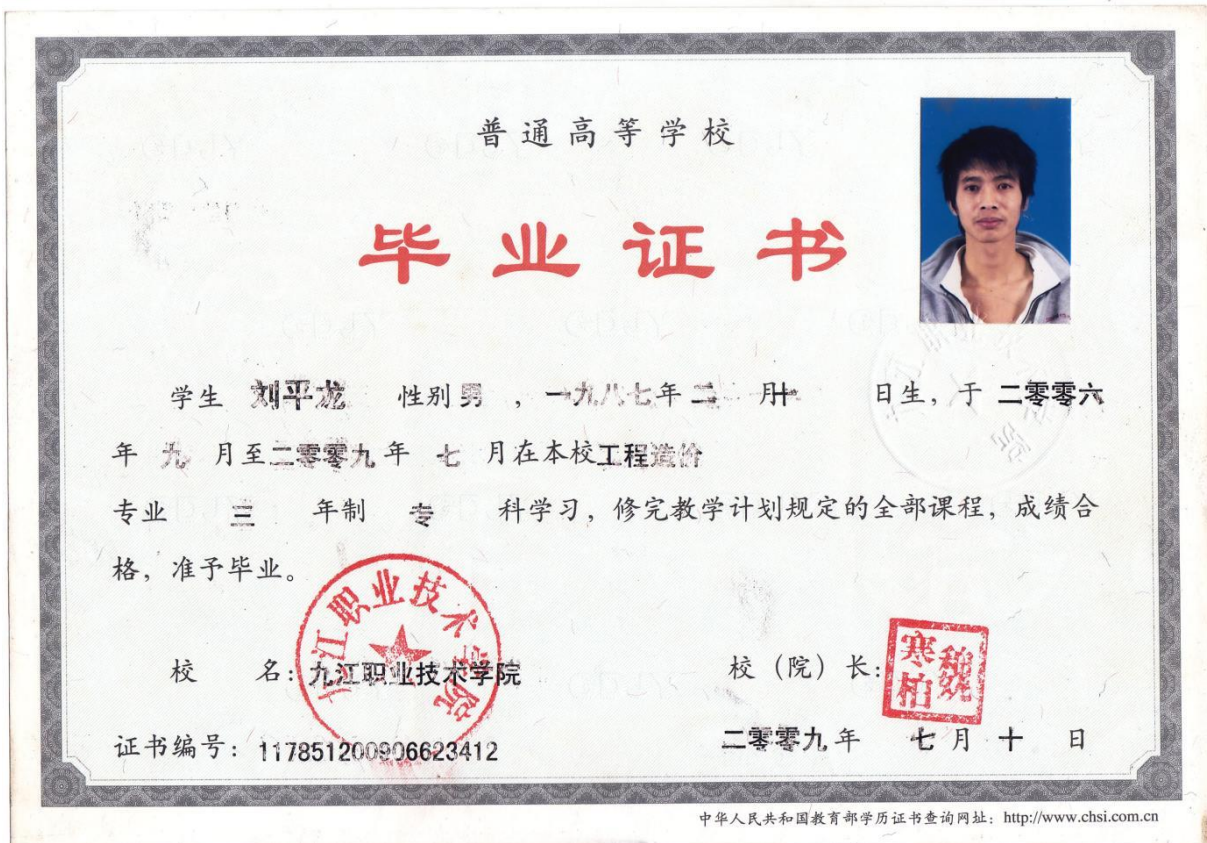 普通高等学校
毕业证书
学生 刘平龙 性别 男 ，一九八七年二月十 日生，于 二零零六
年 九 月至二零零九年 七 月在本校工程造价
专业 三 年制 专 科学习，修完教学计划规定的全部课程，成绩合
格，准予毕业。
九江职业技术学院
校 名：九江职业技术学院
校（院）长：
寒柏
证书编号：117851200906623412
二零零九年 七月 十 日
中华人民共和国教育部学历证书查询网址：http://www.chsi.com.cn